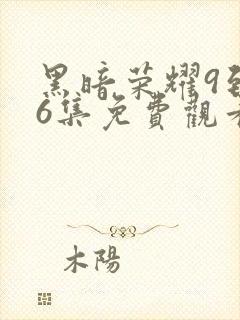 黑暗荣耀9到
6集免費觀看
木陽